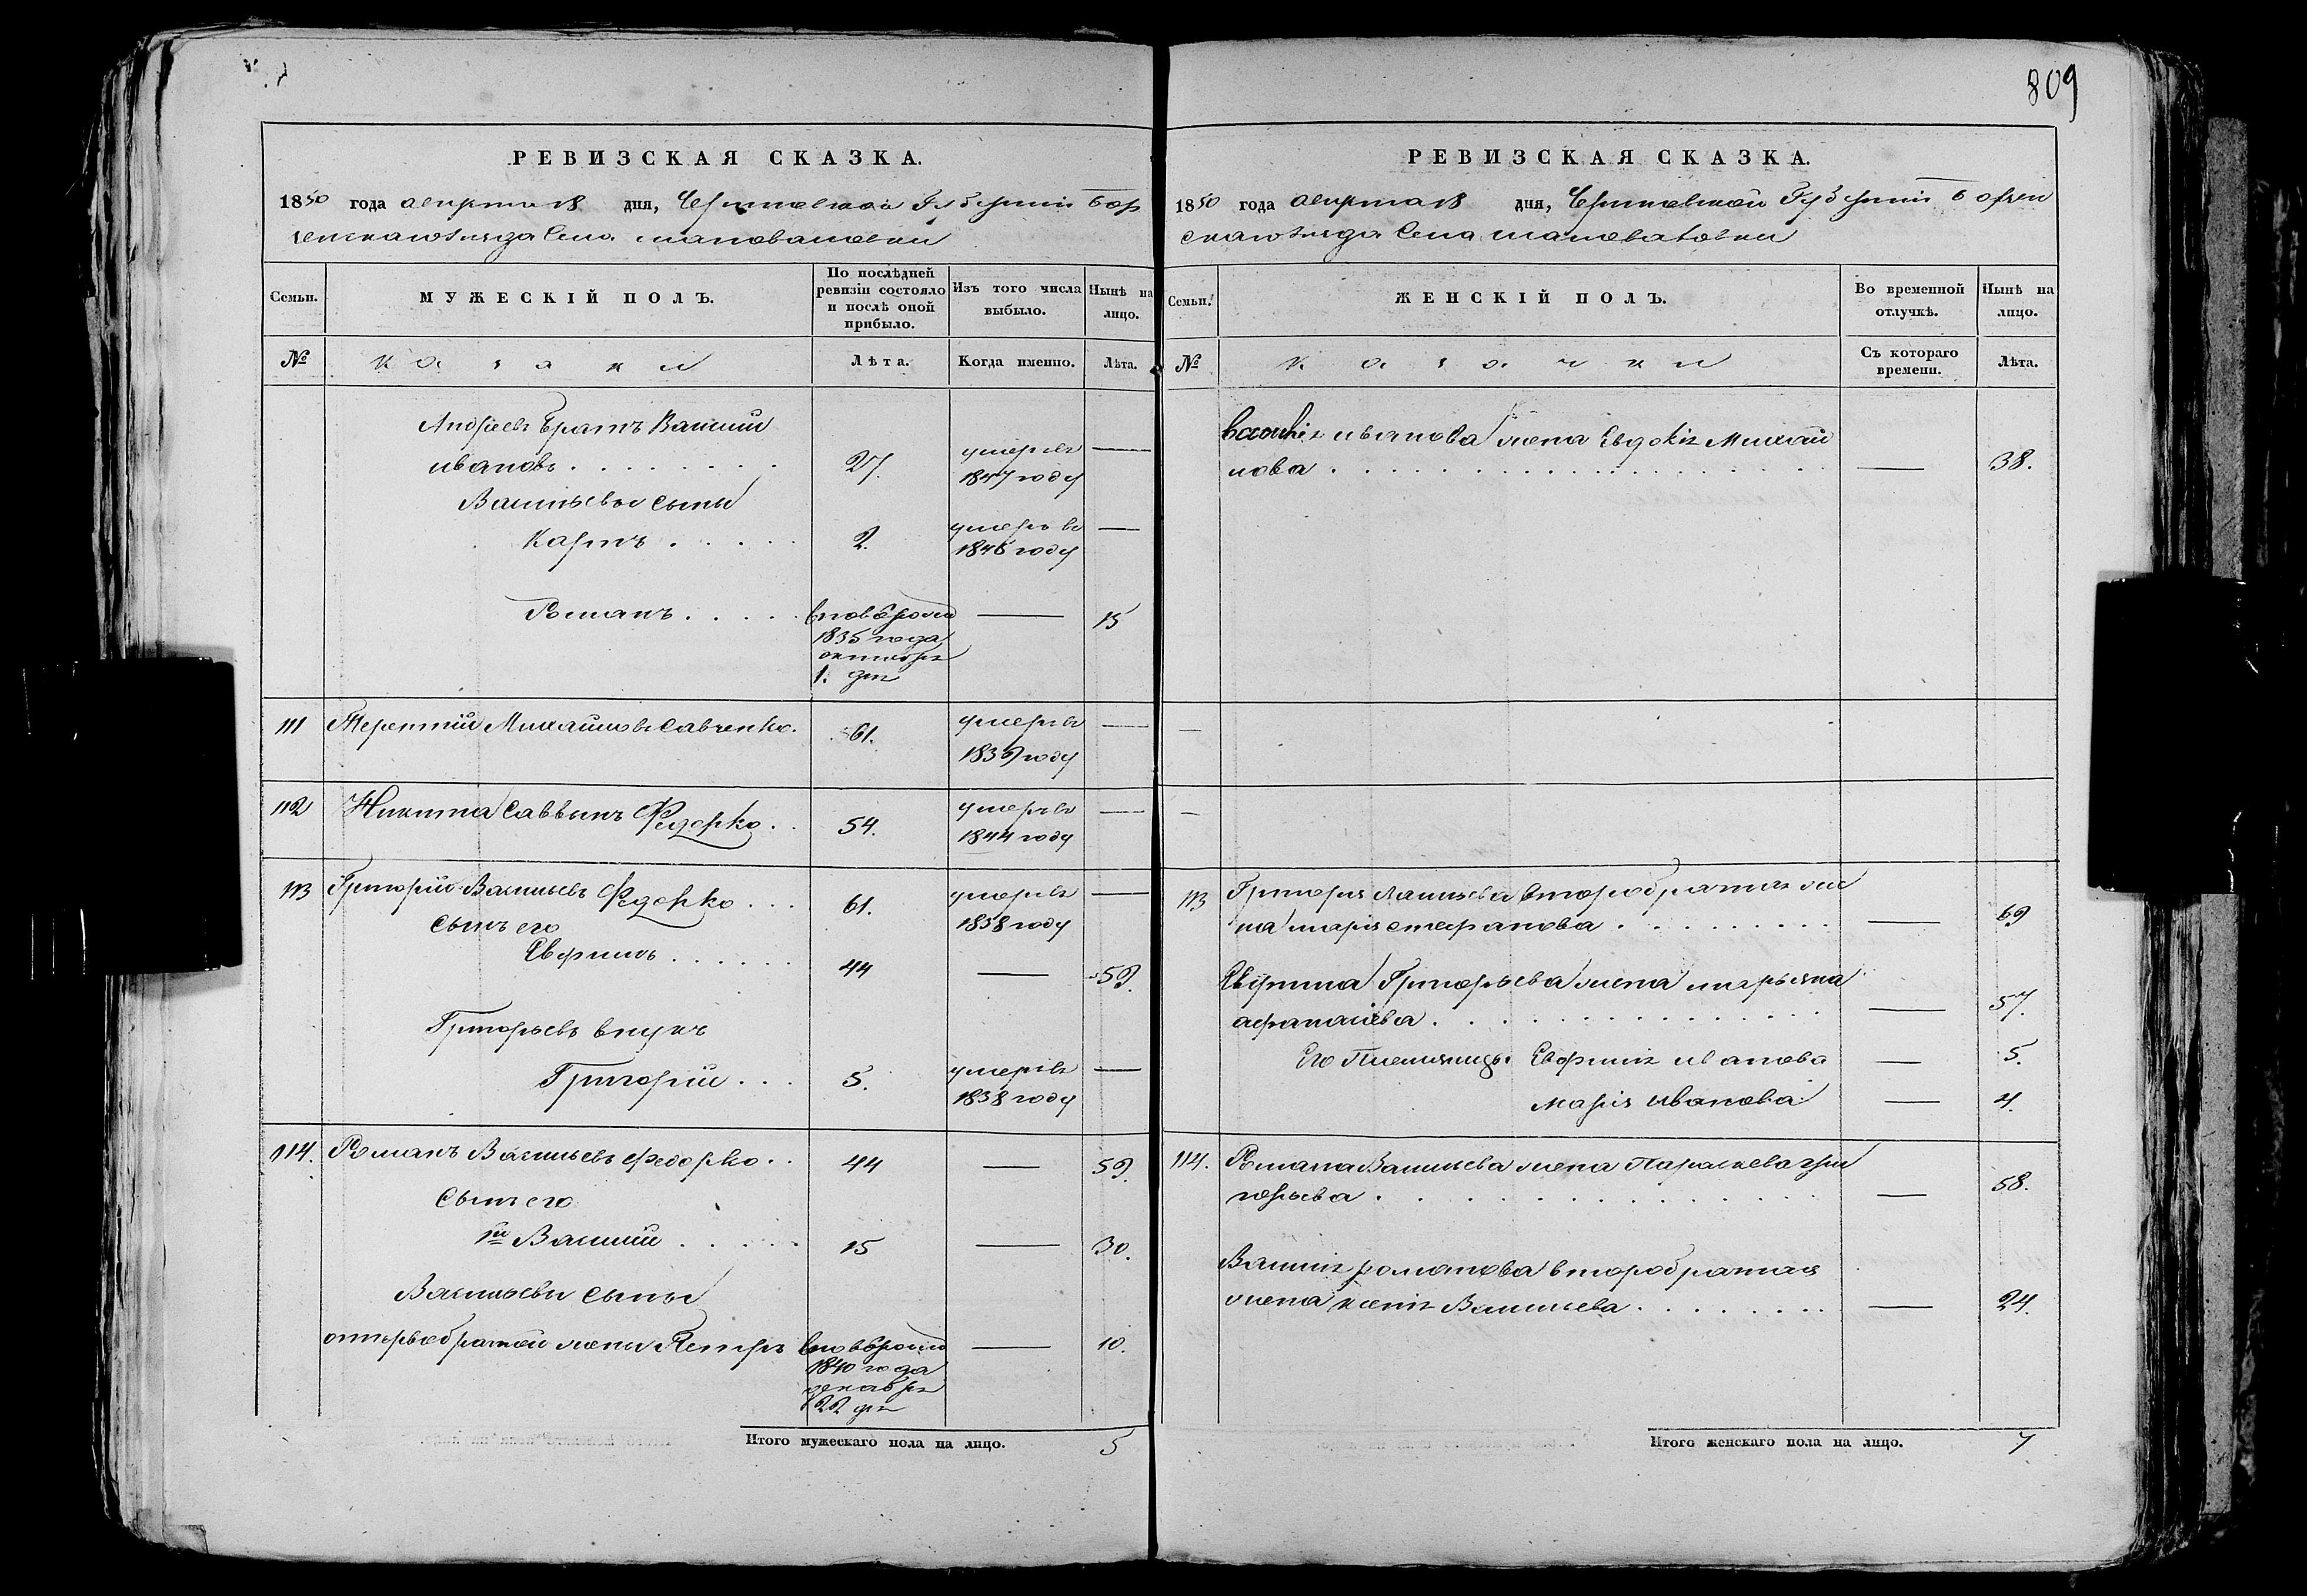 809
РЕВИЗСКАЯ СКАЗКА.
1850 года августа 18 дня, Черниговской Губернии Бор
зенскаго уезда Села
Семьи.
МУЖЕСКІЙ ПОЛЪ.
По послѣдней ревизіи состояло и послѣ оной прибыло.
Изъ того числа выбыло.
Нынѣ на лицо.
№
казаки
Лѣта.
Когда именно.
Лѣта.
Андреевъ братъ Василий
Ивановъ 27. умеръ въ 1847 году —
Васильевы сыны
Карпъ 2. умеръ въ 1846 году —
Романъ вновь рожд 1835 года октября 1. дня — 15
111 Терентий Михайловъ Савченко. 61. умеръ въ 1839 году —
112 Никита Саввинъ Федорко 54. умеръ въ 1844 году —
113 Григорій Васильевъ Федорко 61. умеръ въ 1838 году —
Сынъ его
44 — 59.
Григорьевъ внукъ
Григорій 5. умеръ въ 1838 году —
114. Романъ Васильевъ Федорко 44 — 59.
Сынъ его
1й Василий 15 — 30.
Васильевы сыны
отъ первобрачной жены Петръ вновь рожд 1840 года декабря 22 дня — 10.
Итого мужескаго пола на лицо. 5
РЕВИЗСКАЯ СКАЗКА.
1850 года августа 18 дня, Черниговской Губернии Борзен
скаго уезда Села
Семьи.
ЖЕНСКІЙ ПОЛЪ.
Во временной отлучкѣ.
Нынѣ на лицо.
№
казачки
Съ котораго времени.
Лѣта.
Василия Иванова жена Евдокія Михай
лова — 38.
—
—
113 Григорія Васильева второбрачная же
на Марія Стефанова — 69
Григорьева жена Марьяна
Афанасіева — 57.
Его племянницы Евфимія Иванова — 5.
Марія Иванова — 4.
114. Романа Васильева жена Параскева Гри
горьева — 58.
Василия Романова второбрачная
жена Ксенія Васильева — 24.
Итого женскаго пола на лицо. 7